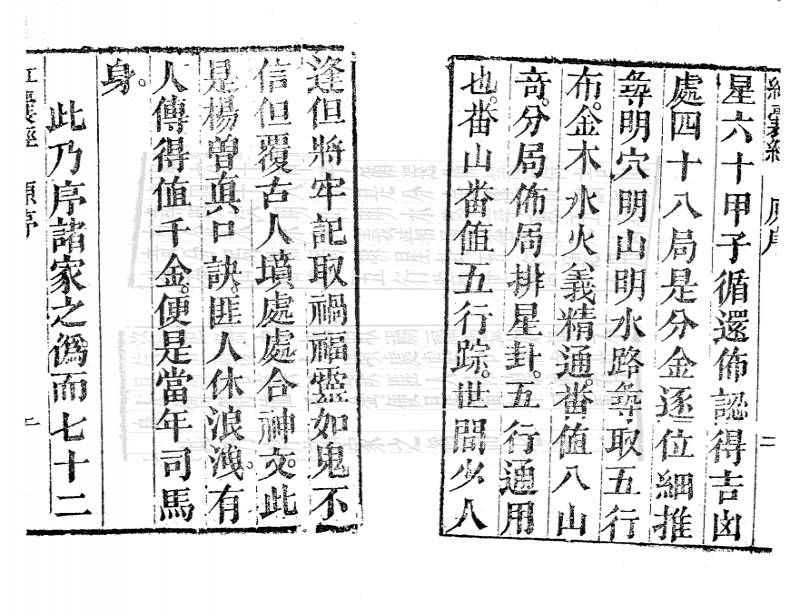 星六十甲子循還佈認得吉凶
處四十八局是分金逐位細推
尋明穴明山明水路尋取五行
布。金木水火義精通。番值八山
奇。分局佈局排星卦。五行通用
也。番山番值五行踪。世間少人
逢但將牢記取禍福靈如鬼不
信但覆古人墳處處合神文。此
是楊曾真口訣。匪人休浪洩。有
人傳得值千金。便是當年司馬
身。
此乃序諸家之僞而七十二
原序